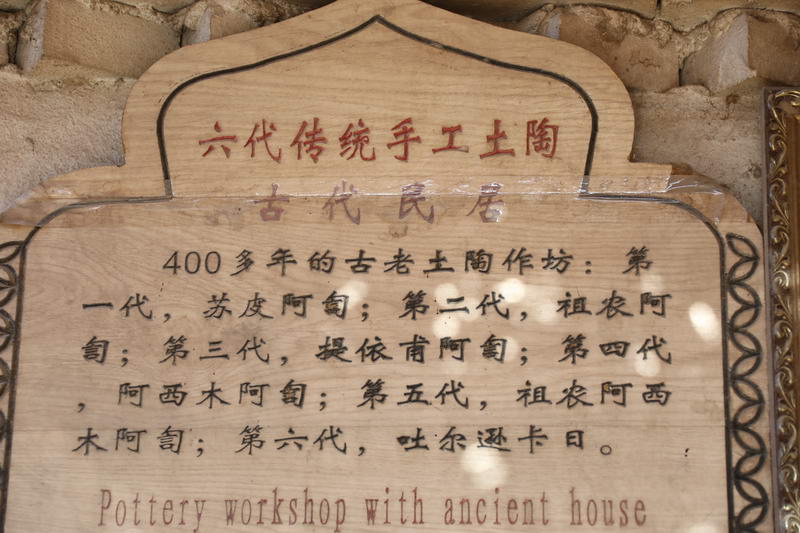 六代传统手工土陶
古代民居
400多年的古老土陶作坊：第
一代，苏皮阿訇；第二代，祖农阿
訇；第三代，提依甫阿訇；第四代
，阿西木阿訇；第五代，祖农阿西
木阿訇；第六代，吐尔逊卡日。
Pottery workshop with ancient house